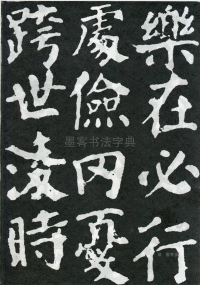 樂在必行
處儉罔憂
跨世凌時
墨客书法字典